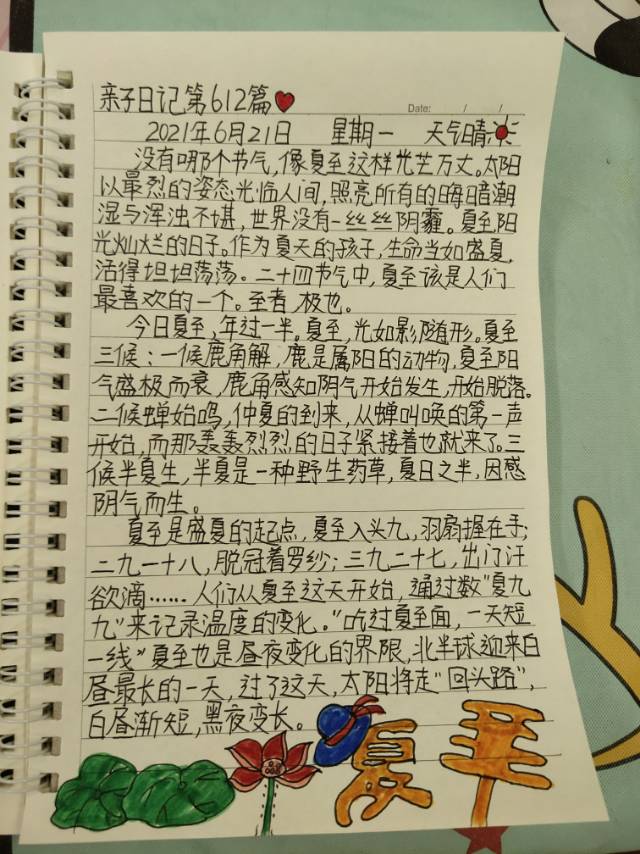 亲子日记第612篇
Date: / /
2021年6月21日 星期一 天气晴
没有哪个节气,像夏至这样光芒万丈。太阳
以最烈的姿态光临人间,照亮所有的晦暗潮
湿与浑浊不堪,世界没有一丝丝阴霾。夏至阳
光灿烂的日子。作为夏天的孩子,生命当如盛夏,
活得坦坦荡荡。二十四节气中,夏至该是人们
最喜欢的一个。至者,极也。
今日夏至,年过一半。夏至,光如影随形。夏至
三候:一候鹿角解,鹿是属阳的动物,夏至阳
气盛极而衰,鹿角感知阴气开始发生,开始脱落。
二候蝉始鸣,仲夏的到来,从蝉叫唤的第一声
开始,而那轰轰烈烈的日子紧接着也就来了。三
候半夏生,半夏是一种野生药草,夏日之半,因感
阴气而生。
夏至是盛夏的起点,夏至入头九,羽扇握在手;
二九一十八,脱冠着罗纱;三九二十七,出门汗
欲滴……人们从夏至这天开始,通过数"夏九
九"来记录温度的变化。"吃过夏至面,一天短
一线"夏至也是昼夜变化的界限,北半球迎来白
昼最长的一天,过了这天,太阳将走"回头路",
白昼渐短,黑夜变长。
夏至